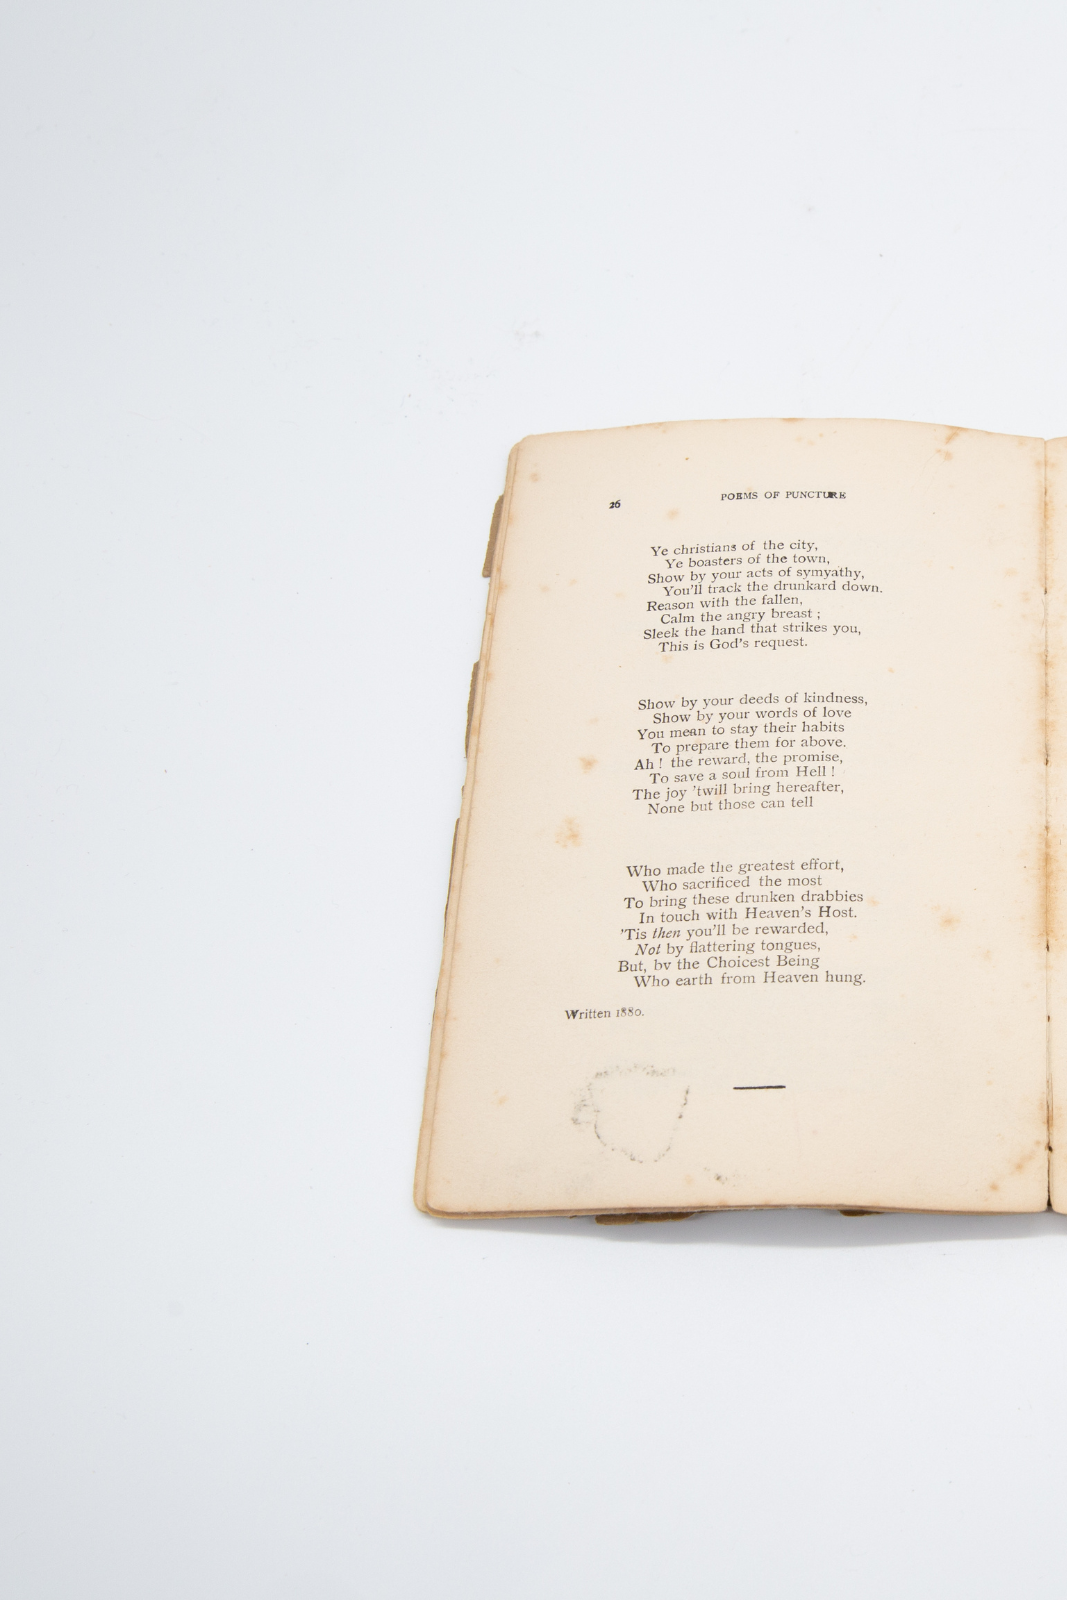 26
POEMS OF PUNCTURE
Ye christians of the city,
Ye boasters of the town,
Show by your acts of symyathy,
You'll track the drunkard down.
Reason with the fallen,
Calm the angry breast ;
Sleek the hand that strikes you,
This is God's request.
Show by your deeds of kindness,
Show by your words of love
You mean to stay their habits
To prepare them for above.
Ah ! the reward, the promise,
To save a soul from Hell !
The joy 'twill bring hereafter,
None but those can tell
Who made the greatest effort,
Who sacrificed the most
To bring these drunken drabbies
In touch with Heaven's Host.
'Tis then you'll be rewarded,
Not by flattering tongues,
But, bv the Choicest Being
Who earth from Heaven hung.
Written 1880.